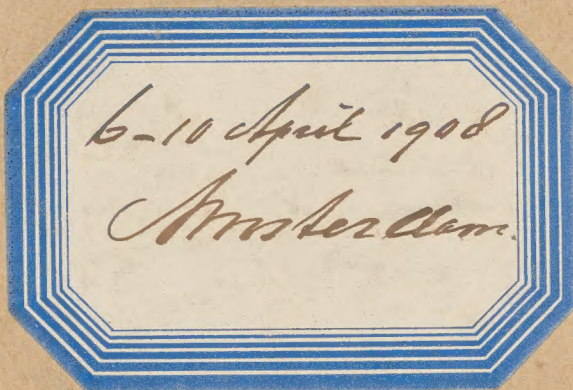 6-10 April 1908
Amsterdam.